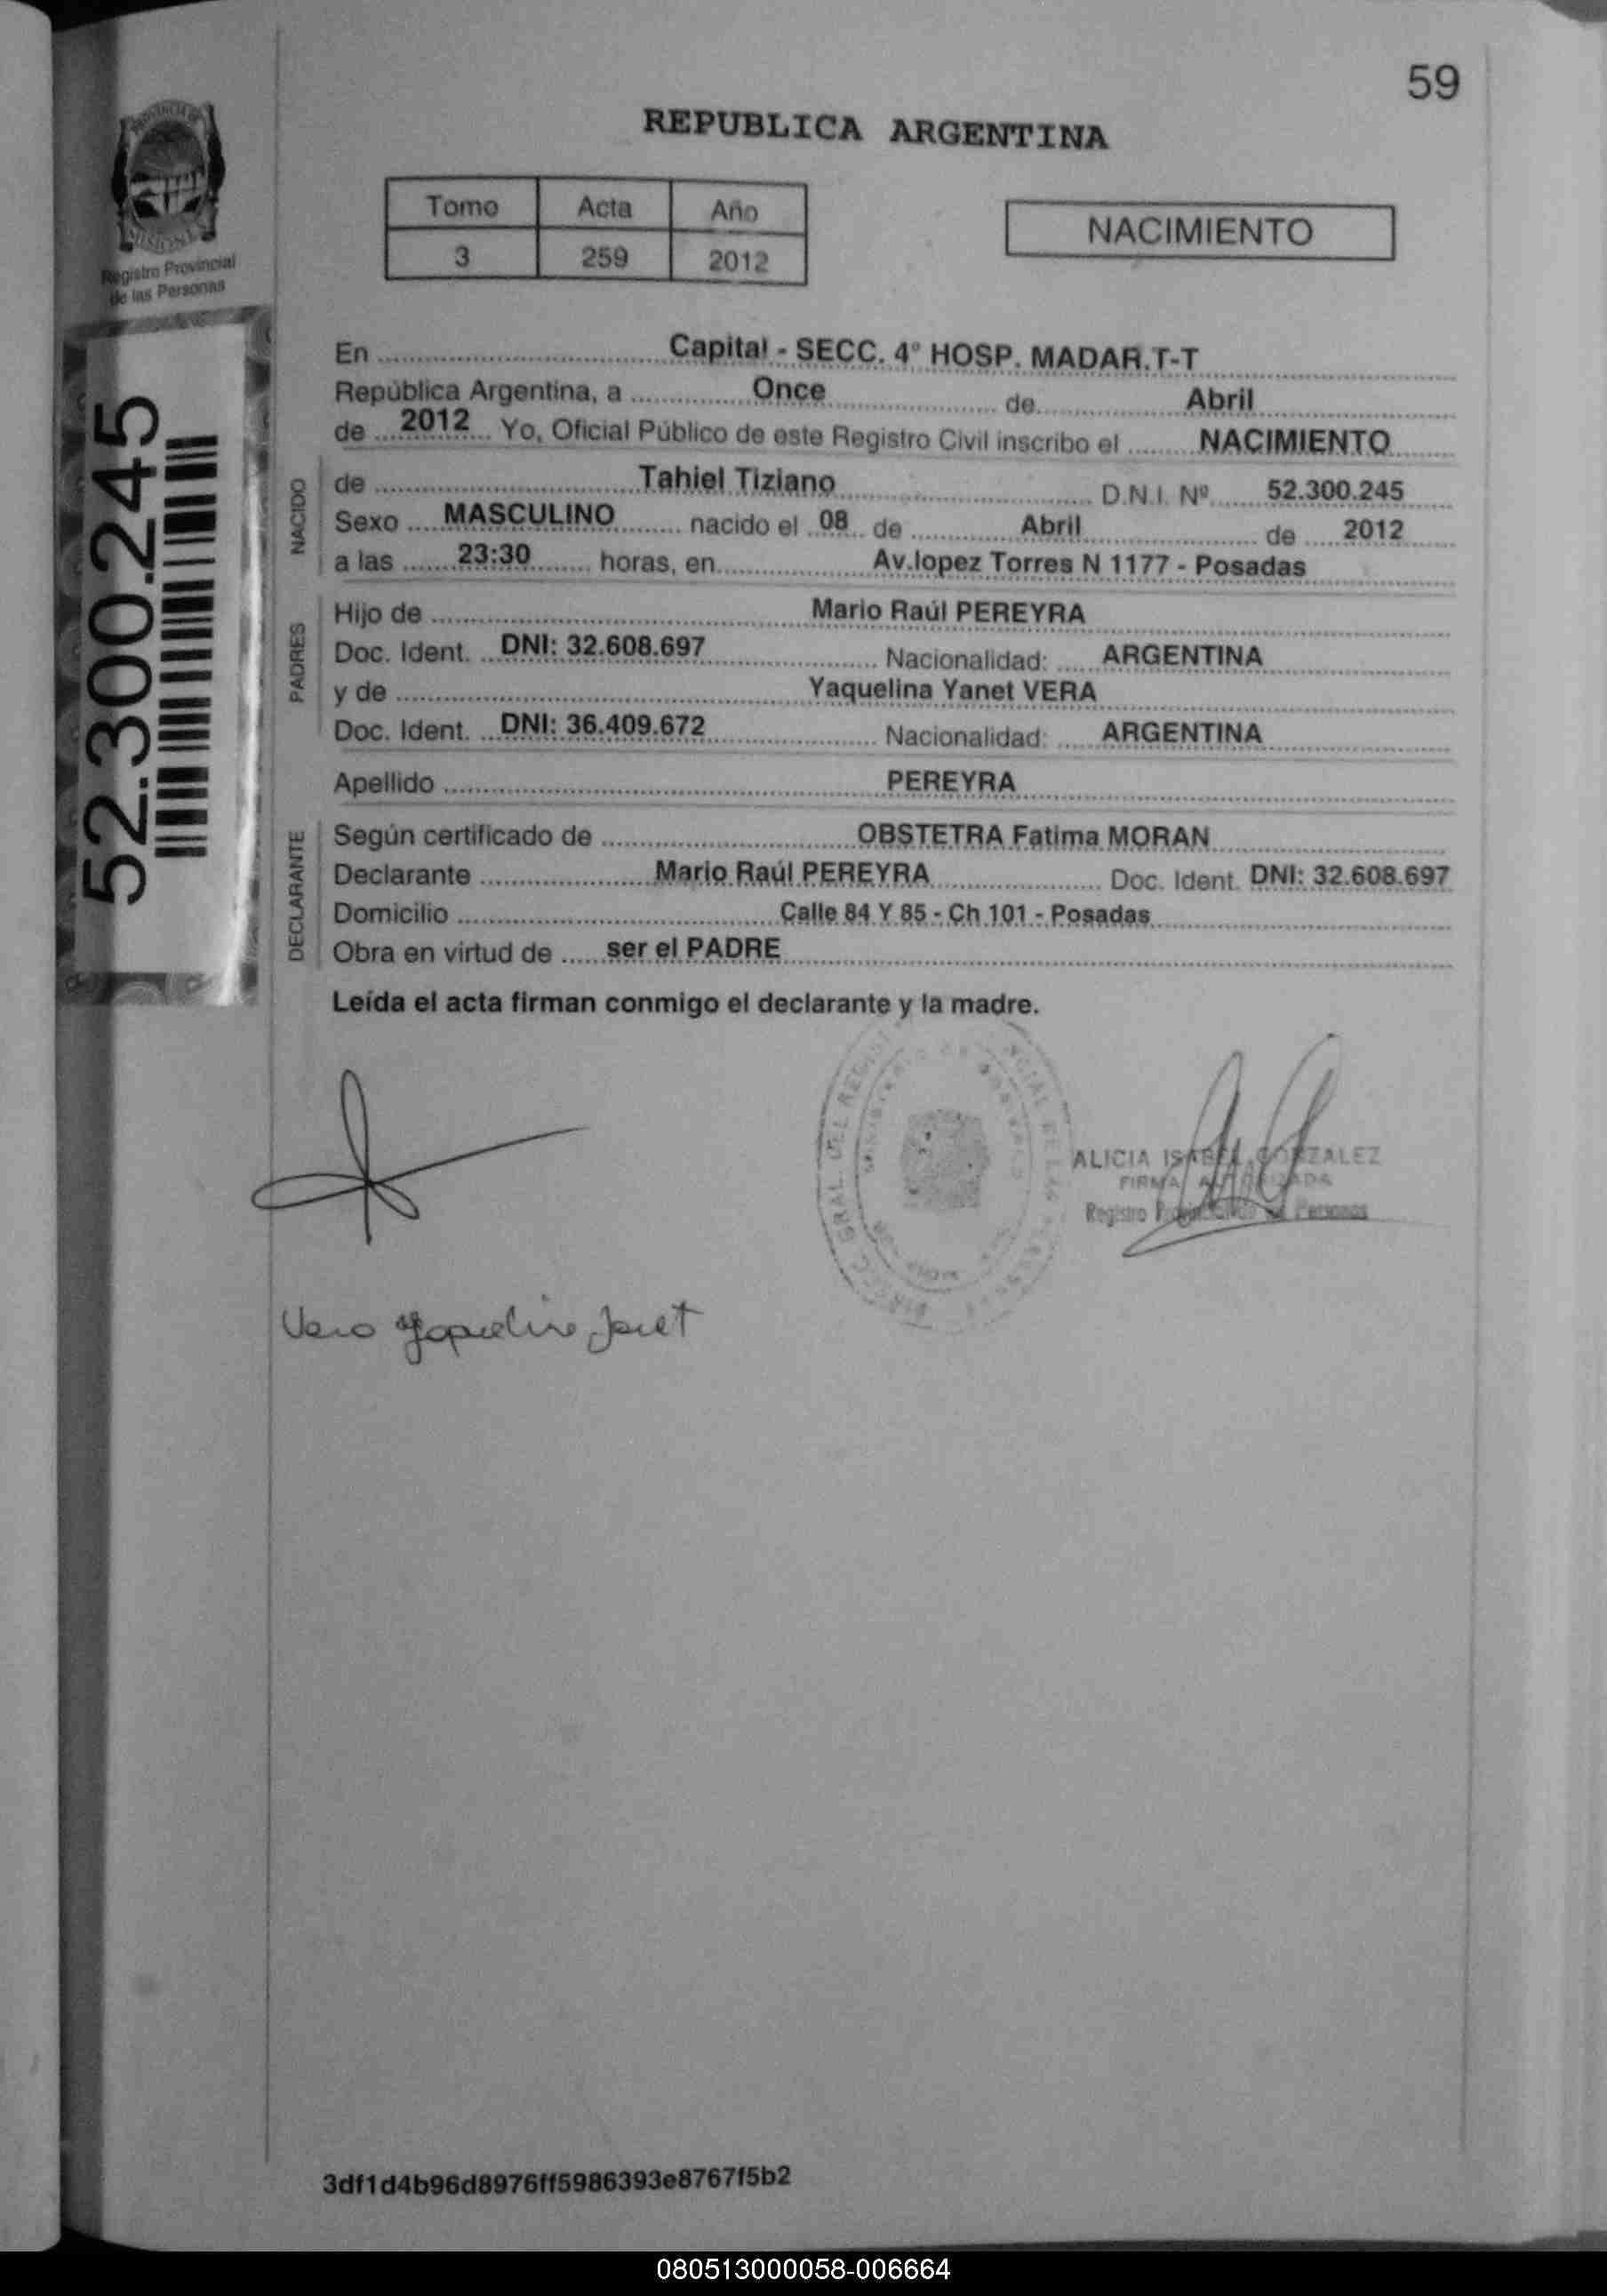 59
PROVINCIA DE
MISIONES
Registro Provincial
de las Personas
REPUBLICA ARGENTINA
Tomo Acta Año
3 259 2012
NACIMIENTO
52.300.245
En Capital - SECC. 4° HOSP. MADAR.T-T
República Argentina, a Once de Abril
de 2012 Yo, Oficial Público de este Registro Civil inscribo el NACIMIENTO
NACIDO
de Tahiel Tiziano D.N.I. Nº 52.300.245
Sexo MASCULINO nacido el 08 de Abril de 2012
a las 23:30 horas, en Av.lopez Torres N 1177 - Posadas
PADRES
Hijo de Mario Raúl PEREYRA
Doc. Ident. DNI: 32.608.697 Nacionalidad: ARGENTINA
y de Yaquelina Yanet VERA
Doc. Ident. DNI: 36.409.672 Nacionalidad: ARGENTINA
Apellido PEREYRA
DECLARANTE
Según certificado de OBSTETRA Fatima MORAN
Declarante Mario Raúl PEREYRA Doc. Ident. DNI: 32.608.697
Domicilio Calle 84 Y 85 - Ch 101 - Posadas
Obra en virtud de ser el PADRE
Leída el acta firman conmigo el declarante y la madre.
GRAL. DEL
ALICIA ISABEL GONZALEZ
FIRMA AUTORIZADA
Registro Provincial de las Personas
Vera Yaqueline Janet
3df1d4b96d8976ff5986393e8767f5b2
080513000058-006664